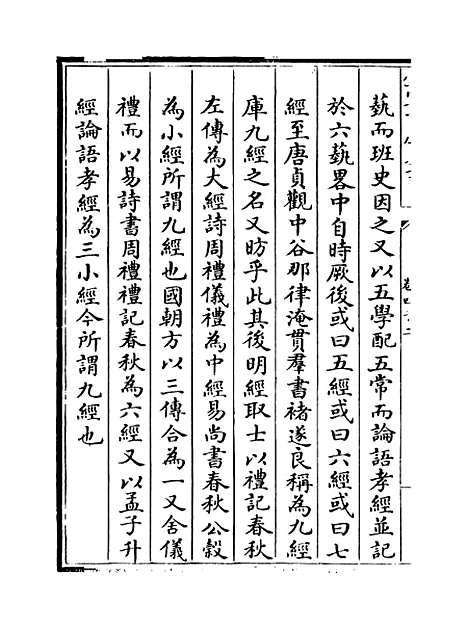 藝而班史因之又以五學配五常而論語孝經並記
於六藝畧中自時厥後或曰五經或曰六經或曰七
經至唐貞觀中谷那律淹貫羣書褚遂良稱為九經
庫九經之名又昉乎此其後明經取士以禮記春秋
左傳為大經詩周禮儀禮為中經易尚書春秋公穀
為小經所謂九經也國朝方以三傳合為一又舍儀
禮而以易詩書周禮禮記春秋為六經又以孟子升
經論語孝經為三小經今所謂九經也